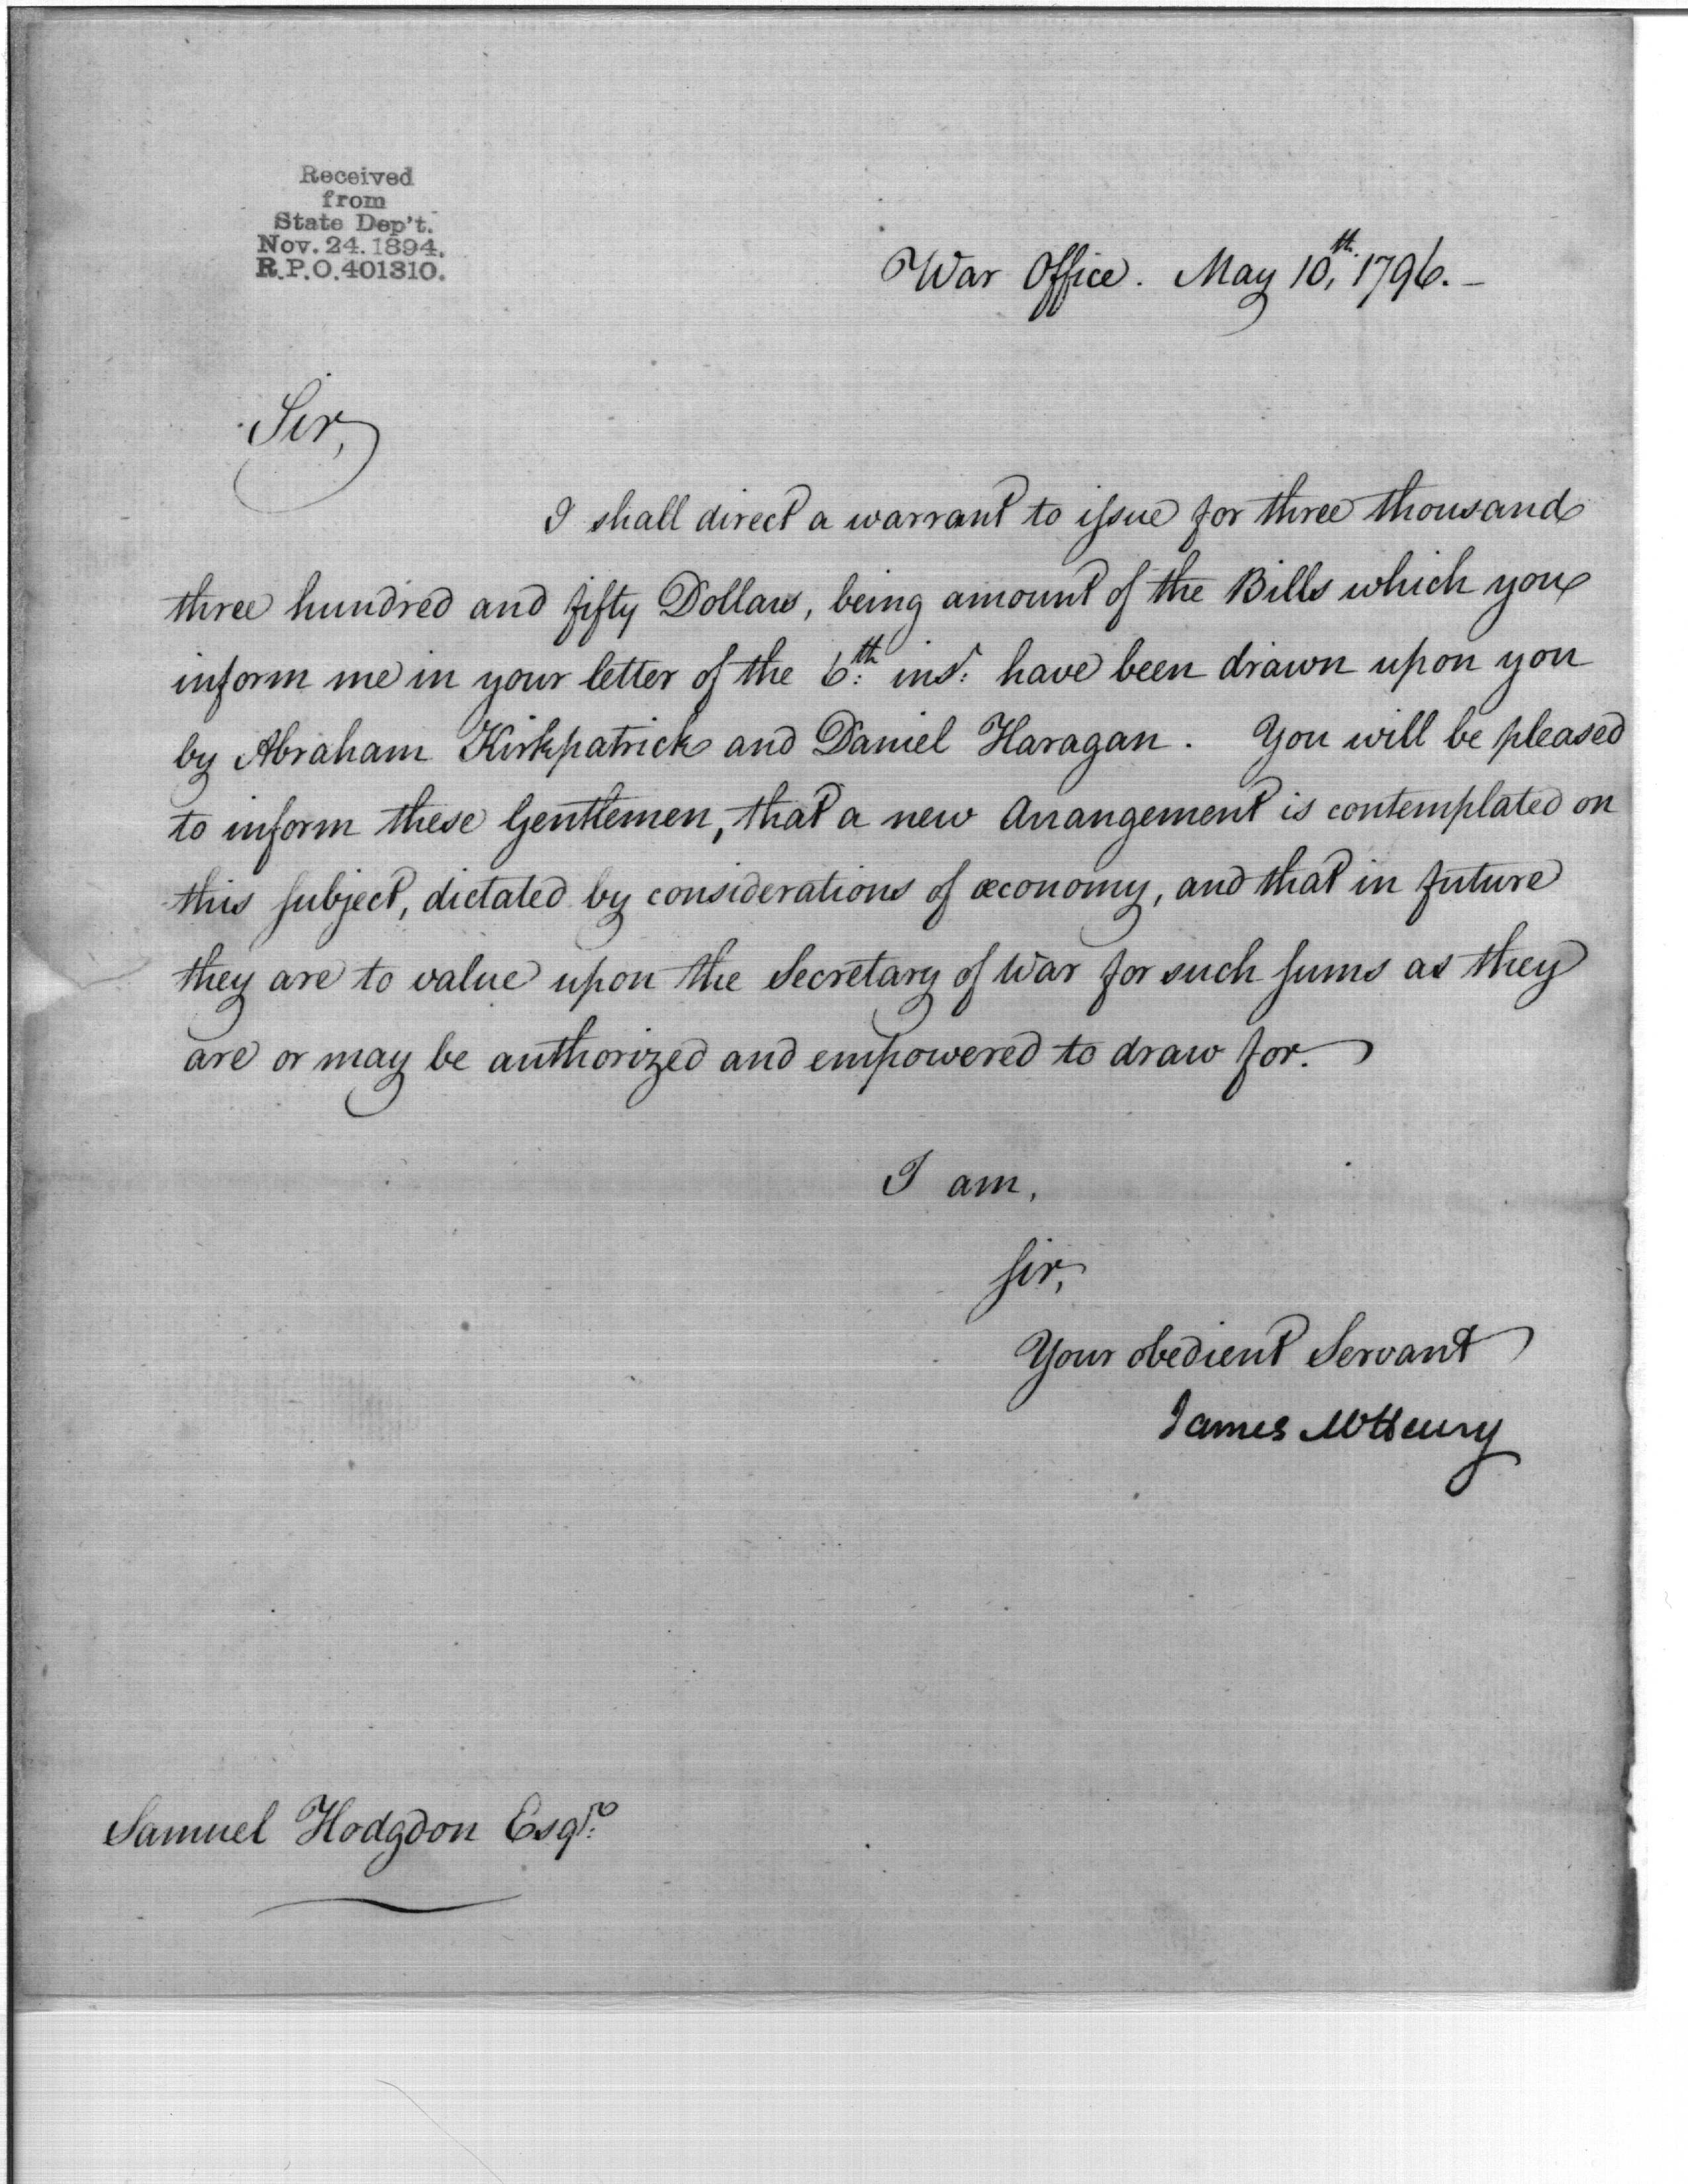 Received
from
State Dep't.
Nov. 24. 1894.
R.P.O. 401310.
War Office. May 10th. 1796. –
Sir,
I shall direct a warrant to issue for three thousand
three hundred and fifty Dollars, being amount of the Bills which you
inform me in your letter of the 6th: inst: have been drawn upon you
by Abraham Kirkpatrick and Daniel Haragan. You will be pleased
to inform these Gentlemen, that a new Arrangement is contemplated on
this subject, dictated by considerations of œconomy, and that in future
they are to value upon the Secretary of War for such sums as they
are or may be authorized and empowered to draw for.
I am,
Sir,
Your obedient Servant
James McHenry
Samuel Hodgdon Esqr: